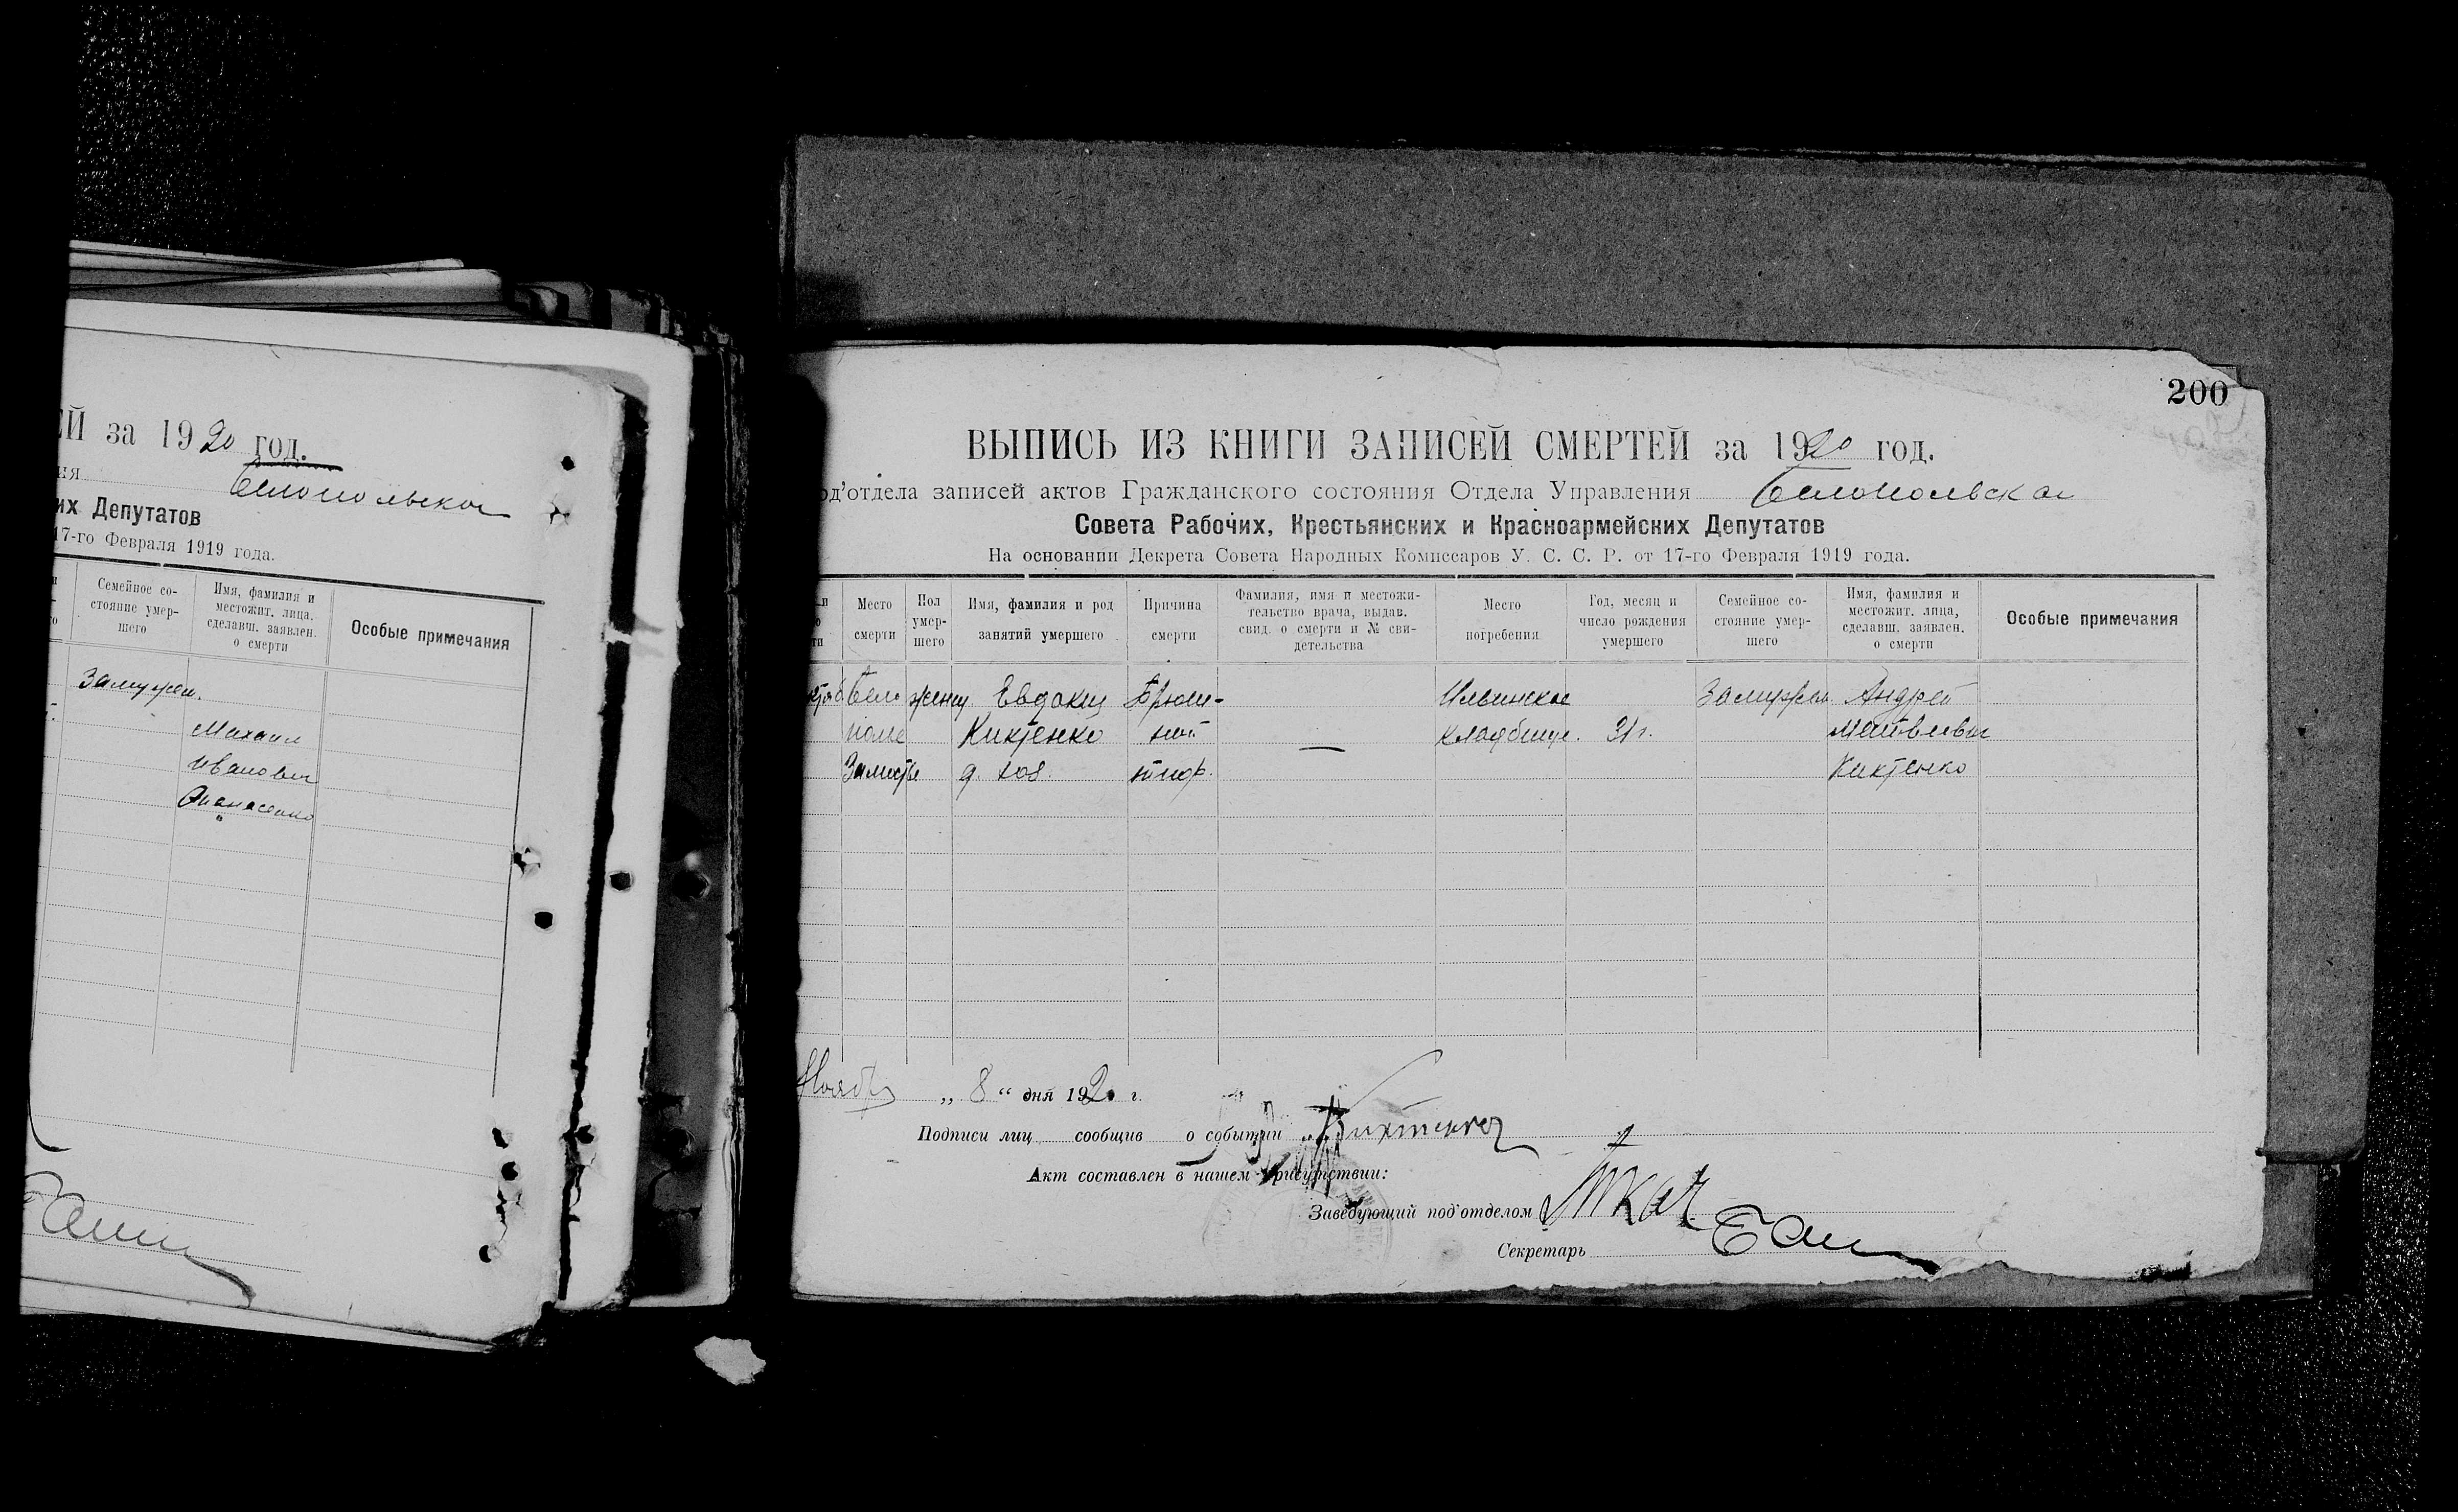 ЕЙ за 1920 год.
ия Белопольска
их Депутатов
17-го Февраля 1919 года.
Семейное со-
стояние умер-
шего
Имя, фамилия и
местожит. лица,
сделавш. заявлен.
о смерти
Особые примечания
Замужем.
Михаил
Иванович
Опанасенко
200
ВЫПИСЬ ИЗ КНИГИ ЗАПИСЕЙ СМЕРТЕЙ за 1920 год.
од'отдела записей актов Гражданского состояния Отдела Управления Белопольска
Совета Рабочих, Крестьянских и Красноармейских Депутатов
На основании Декрета Совета Народных Комиссаров У. С. С. Р. от 17-го Февраля 1919 года.
Место
смерти
Пол
умер-
шего
Имя, фамилия и род
занятий умершего
Причина
смерти
Фамилия, имя и местожи-
тельство врача, выдав.
свид. о смерти и № сви-
детельства
Место
погребения
Год, месяц и
число рождения
умершего
Семейное со-
стояние умер-
шего
Имя, фамилия и
местожит. лица,
сделавш. заявлен.
о смерти
Особые примечания
Бело женщ Евдокия Брюш- Ильинское Замужем Андрей
полье Киктенко ной — кладбище. 31 г. Матвеевич
Заместье д. хоз. тиф. Киктенко
Ноябр „ 8 “ дня 1920 г.
Подписи лиц сообщив о событии Киктенко
Акт составлен в нашем присутствии:
Заведующий под'отделом Ткач
Секретарь